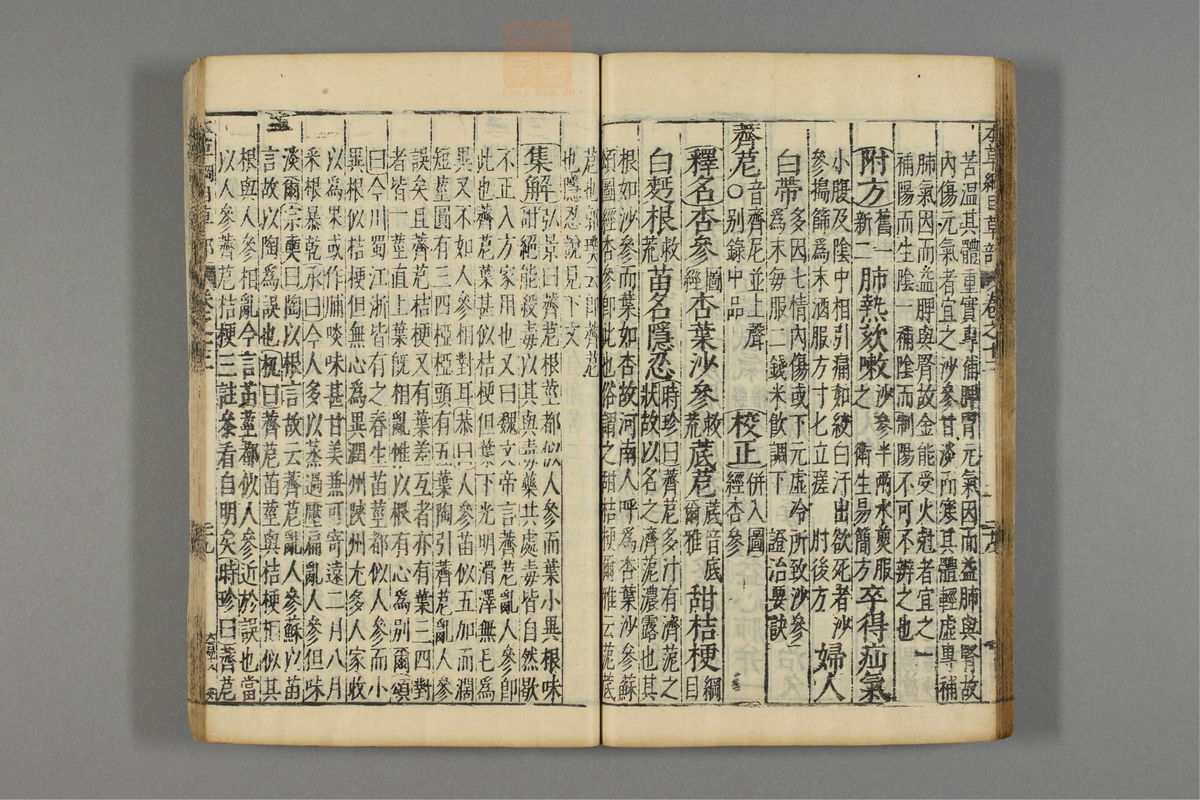 苦温其體重實專補脾胃元氣因而益肺與腎故
內傷元氣者宜之沙參甘淡而寒其體輕虛專補
肺氣因而益脾與腎故金能受火尅者宜之一
補陽而生陰一補陰而制陽不可不辨之也
附方 舊一新二 肺熱欬嗽 沙參半兩水煎服之 衛生易簡方 卒得疝氣
小腹及陰中相引痛如絞自汗出欲死者沙
參搗篩爲末酒服方寸匕立瘥 肘後方 婦人
白帶 多因七情內傷或下元虛冷所致沙參
爲末每服二錢米飲調下 證治要訣
薺苨 音齊尼並上聲 ○别錄中品 校正 併入圖經杏參
釋名 杏參 圖經 杏葉沙參 救荒 菧苨 菧音底 爾雅 甜桔梗 綱目
白麪根 救荒 苗名隱忍 時珍曰薺苨多汁有濟苨之
狀故以名之濟苨濃露也其
根如沙參而葉如杏故河南人呼爲杏葉沙參蘇
頌圖經杏參即此也俗謂之甜桔梗爾雅云苨菧
苨也郭璞云即薺苨
也隱忍說見下文
集解 弘景曰薺苨根莖都似人參而葉小異根味
甜絕能殺毒以其與毒藥共處毒皆自然歇
不正入方家用也又曰魏文帝言薺苨亂人參即
此也薺苨葉甚似桔梗但葉下光明滑澤無毛爲
異又不如人參相對耳恭曰人參苗似五加而濶
短莖圓有三四椏椏頭有五葉陶引薺苨亂人參
誤矣且薺苨桔梗又有葉差互者亦有葉三四對
者皆一莖直上葉既相亂惟以根有心爲别爾頌
曰今川蜀江浙皆有之春生苗莖都似人參而小
異根似桔梗但無心爲異潤州陝州尤多人家收
以爲果或作脯啖味甚甘美兼可寄遠二月八月
采根暴乾承曰今人多以蒸過壓扁亂人參但味
淡爾宗奭曰陶以根言故云薺苨亂人參蘇以苗
言故以陶爲誤也機曰薺苨苗莖與桔梗相似其
根與人參相亂今言苗莖都似人參近於誤也當
以人參薺苨桔梗三註參看自明矣時珍曰薺苨